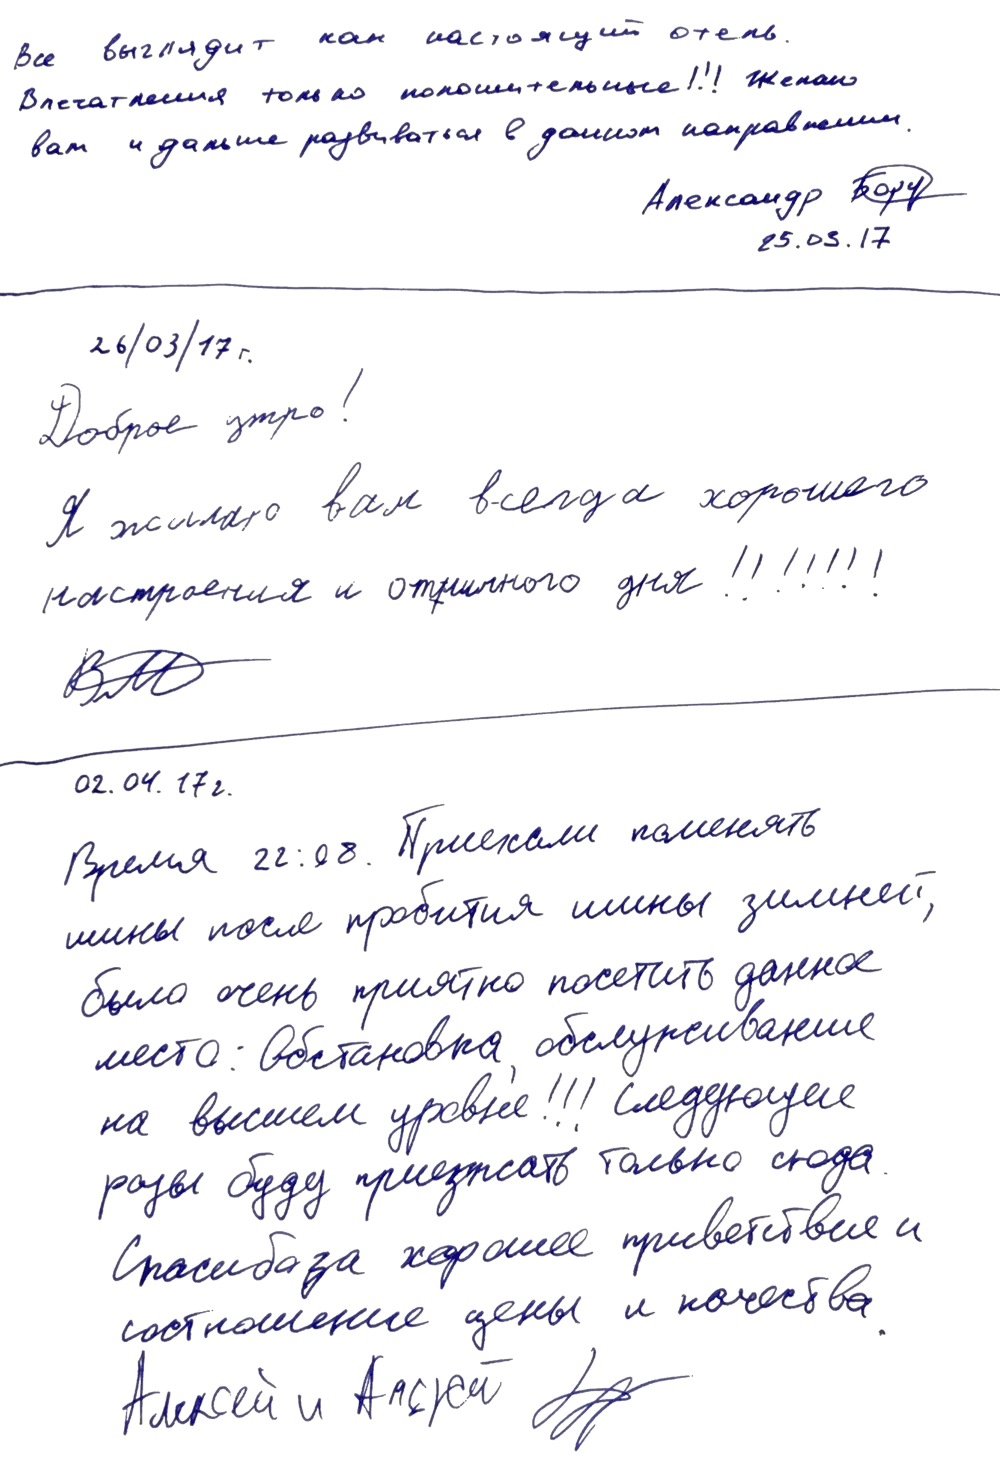 Все выглядит как настоящий отель.
Впечатления только положительные!!! Желаю
вам и дальше развиваться в данном направлении.
Александр
25.03.17
26/03/17 г.
Доброе утро!
Я желаю вам всегда хорошего
настроения и отличного дня !!!!!!!
02.04.17г.
Время 22:08. Приехали поменять
шины после пробития шины зимней,
было очень приятно посетить данное
место: Обстановка, обслуживание
на высшем уровне!!! Следующие
разы буду приезжать только сюда.
Спасибо за хорошее приветствие и
состношение цены и качества.
Алексей и Андрей